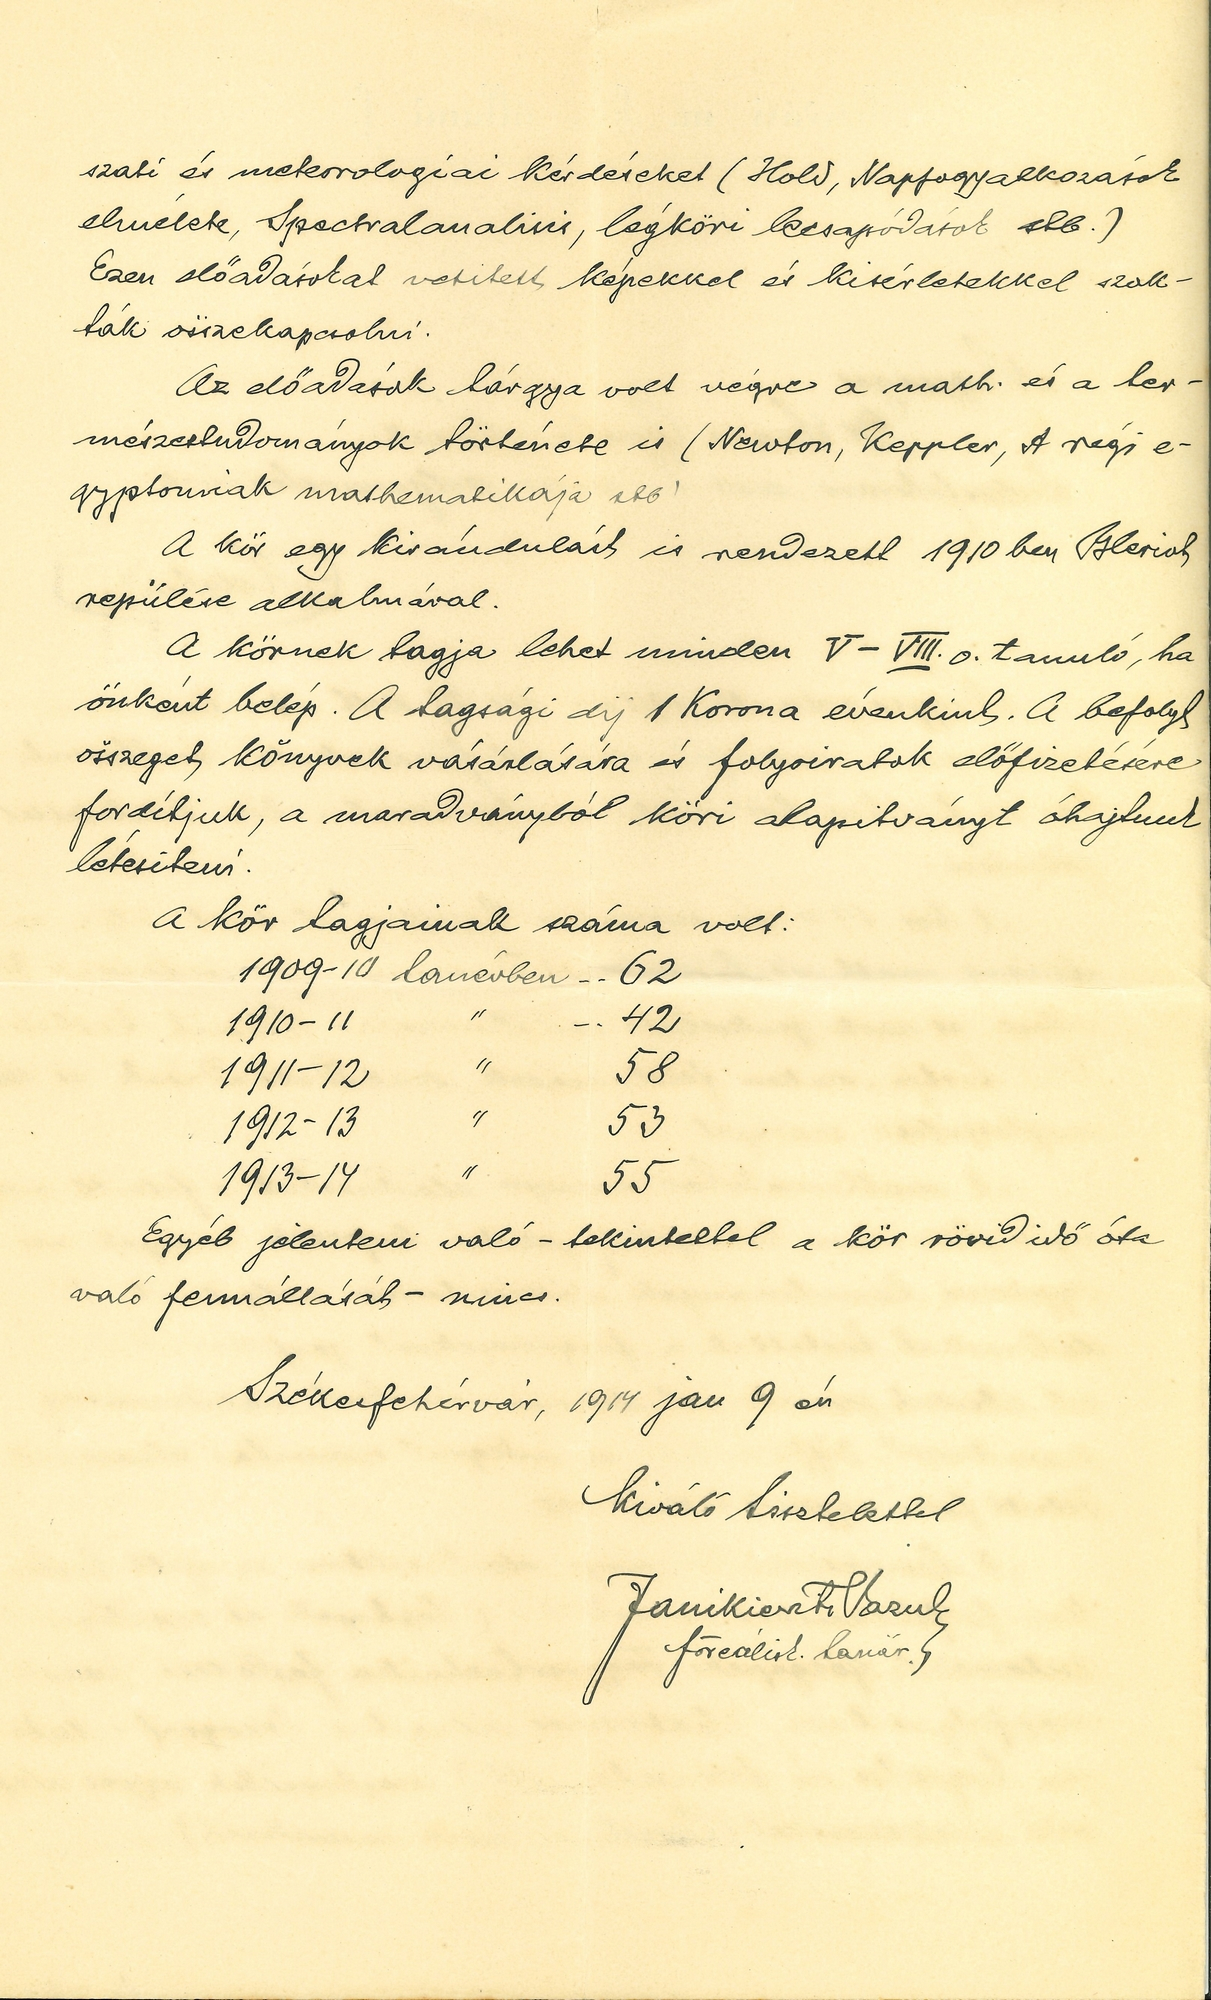 szati és meteorologiai kérdéseket (Hold, Napfogyatkozások
elmélete, Spectralanalisis, légköri lecsapódások stb.)
Ezen előadásokat vetített képekkel és kisérletekkel szok-
ták összekapcsolni.
Az előadások tárgya volt végre a math. és a ter-
mészettudományok története is (Newton, Keppler, A régi e-
gyptomiak mathematikája stb
A kör egy kirándulást is rendezett 1910 ben Bleriot
repülése alkalmával.
A körnek tagja lehet minden V - VIII. o. tanuló, ha
önként belép. A tagsági díj 1 Korona évenkint. A befolyt
összeget könyvek vásárlására és folyoiratok előfizetésére
fordítjuk, a maradványból köri alapitványt óhajtunk
létesiteni.
A kör tagjainak száma volt:
1909-10 tanévben -- 62
1910-11 " -- 42
1911-12 " 58
1912-13 " 53
1913-14 " 55
Egyéb jelenteni való - tekintettel a kör rövid idő óta
való fennállását - nincs.
Székesfehérvár, 1914 jan 9 én
Kiváló tisztelettel
Vazul
főreálisk. tanár.